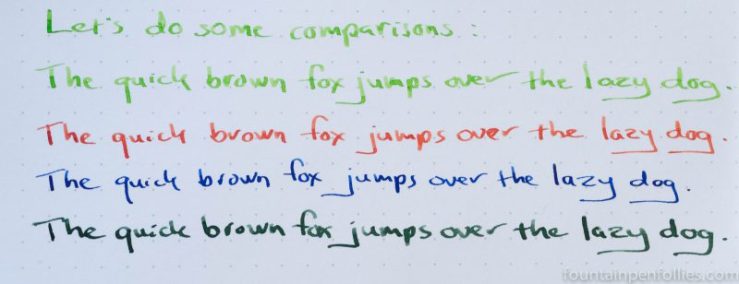 Let's do some comparisons:
The quick brown fox jumps over the lazy dog.
The quick brown fox jumps over the lazy dog.
The quick brown fox jumps over the lazy dog.
The quick brown fox jumps over the lazy dog.
fountainpenfollies.com